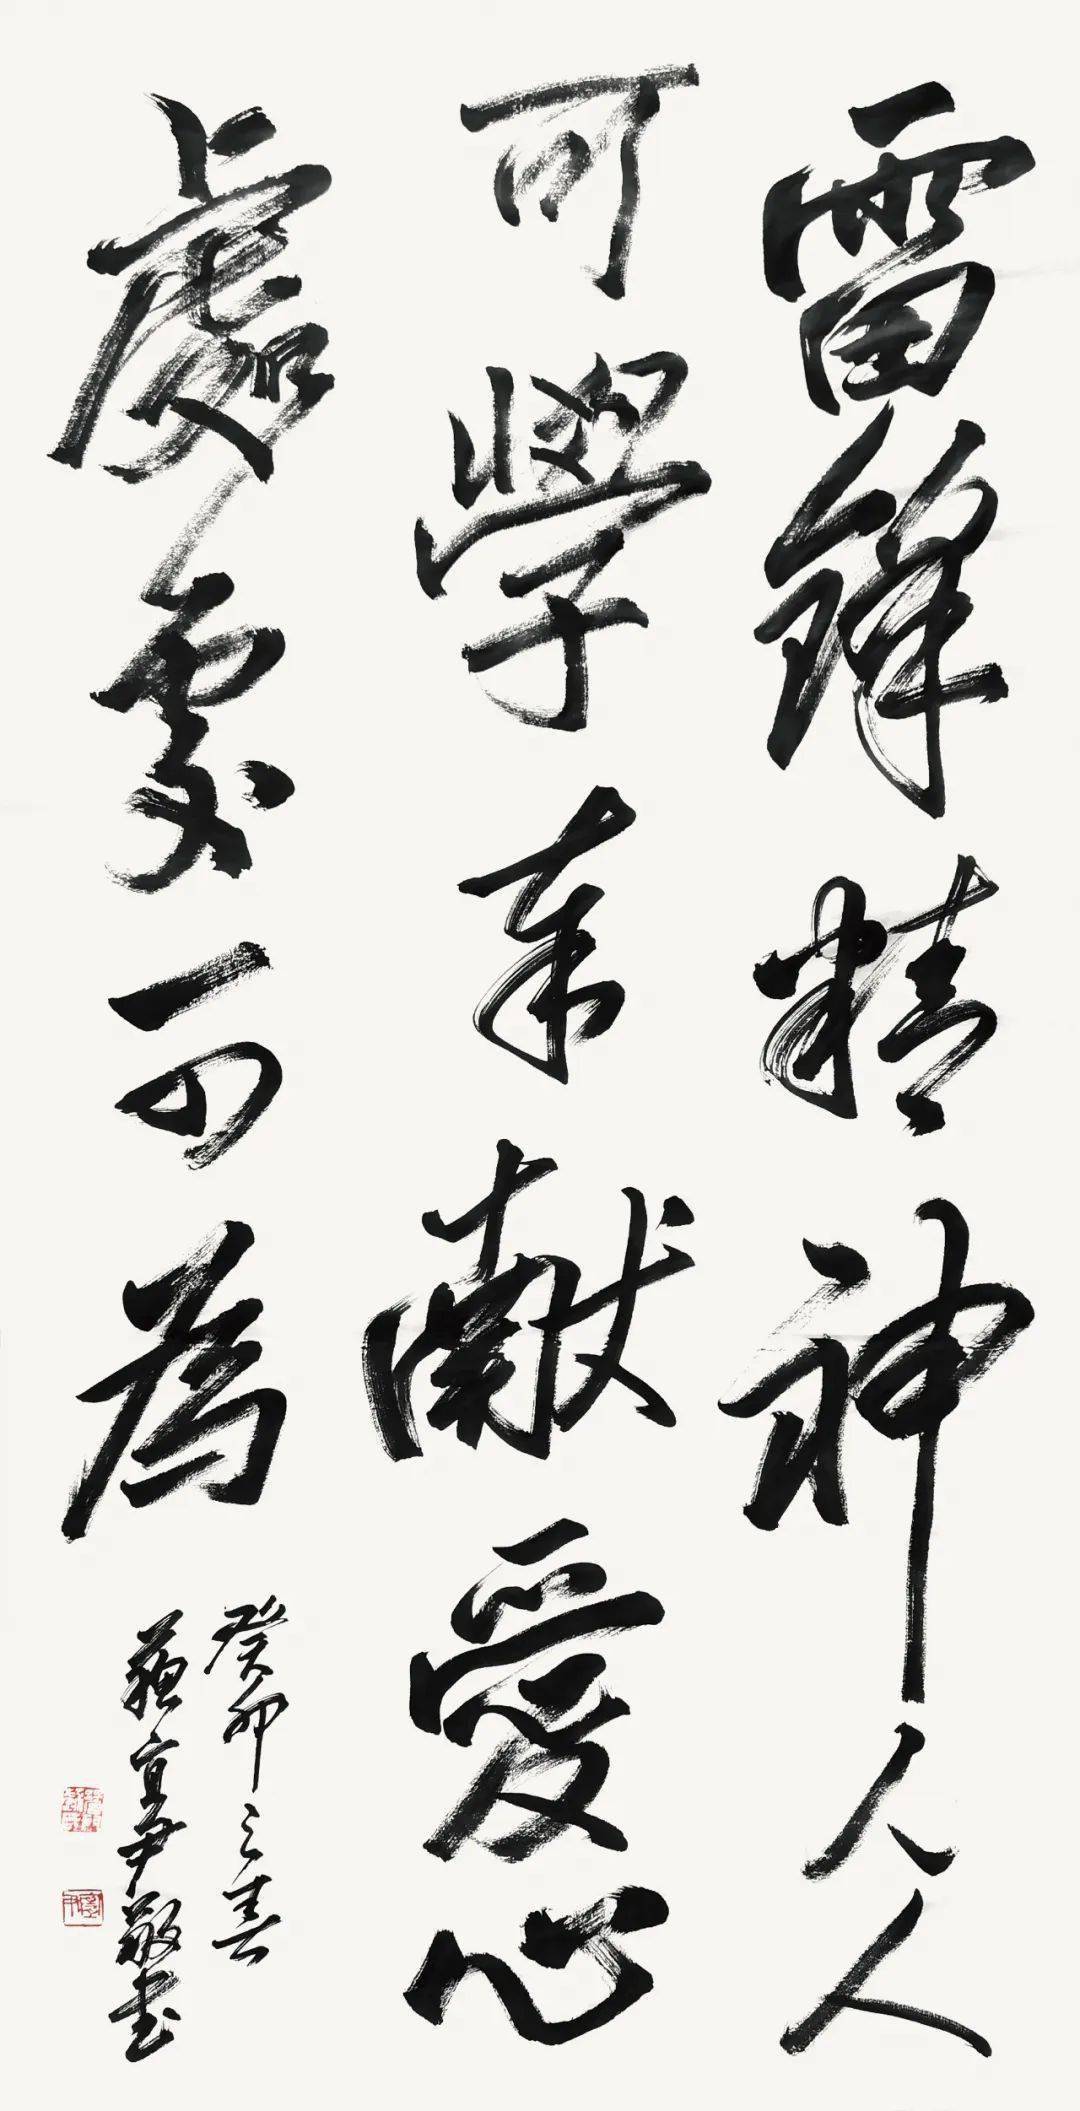 雷鋒精神人人
可學奉献愛心
處處可為
癸卯之春
蘇宜尹敬書